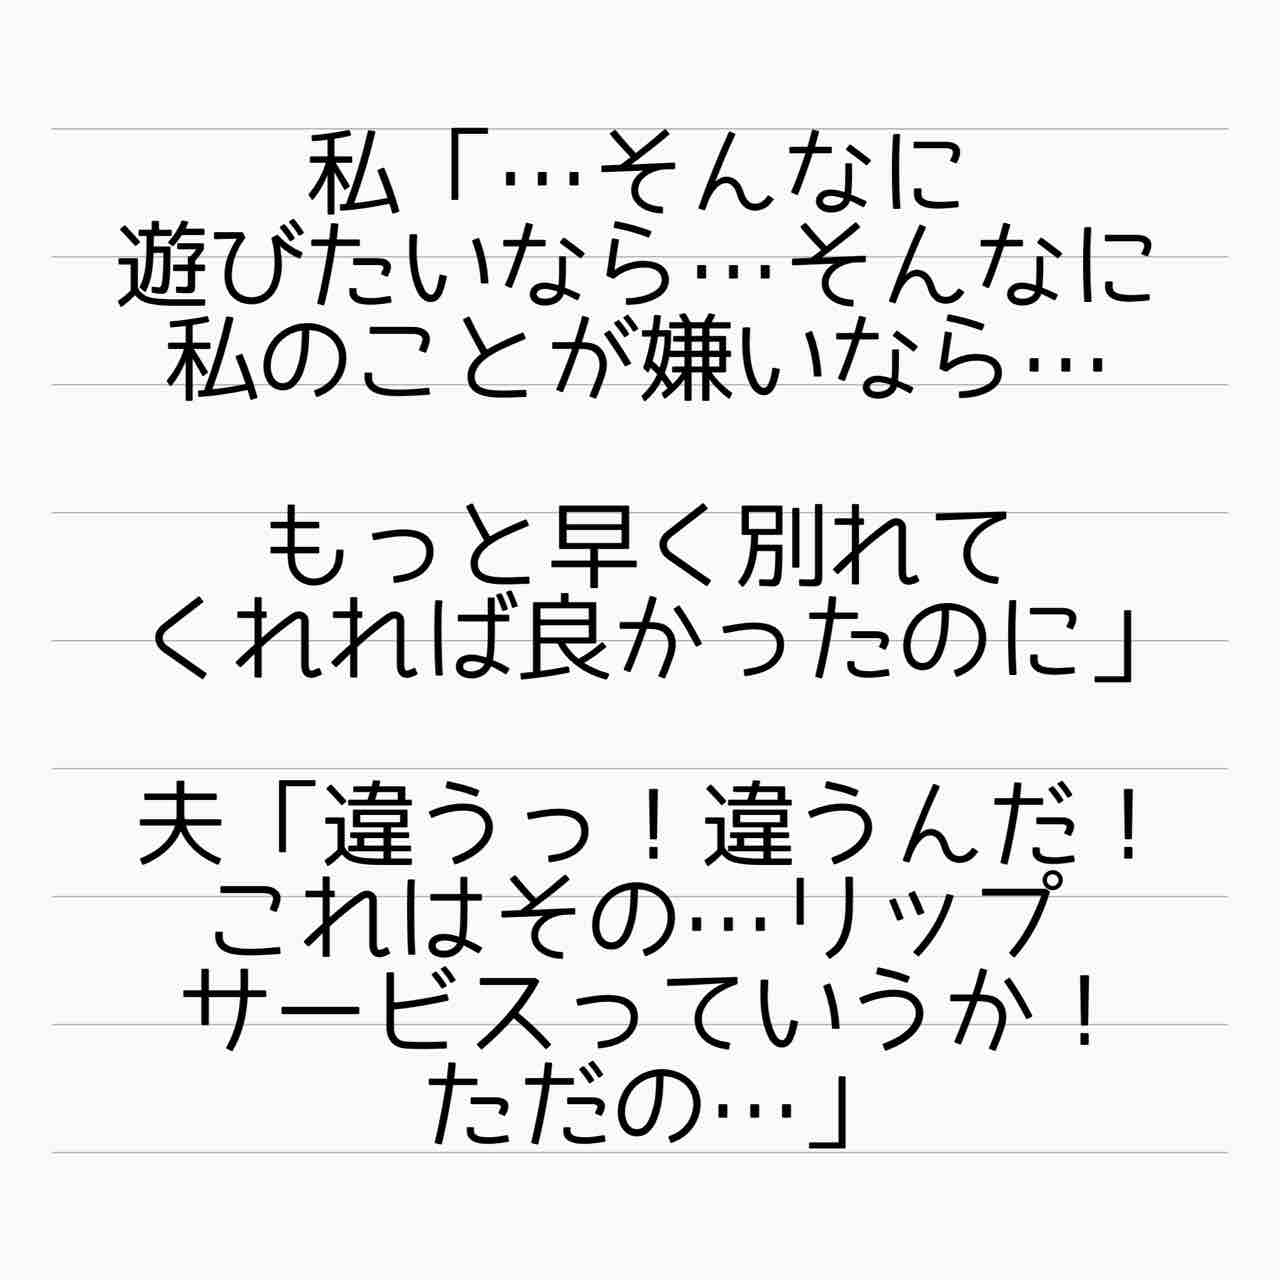 私「…そんなに
遊びたいなら…そんなに
私のことが嫌いなら…
もっと早く別れて
くれれば良かったのに」
夫「違うっ！違うんだ！
これはその…リップ
サービスっていうか！
ただの…」